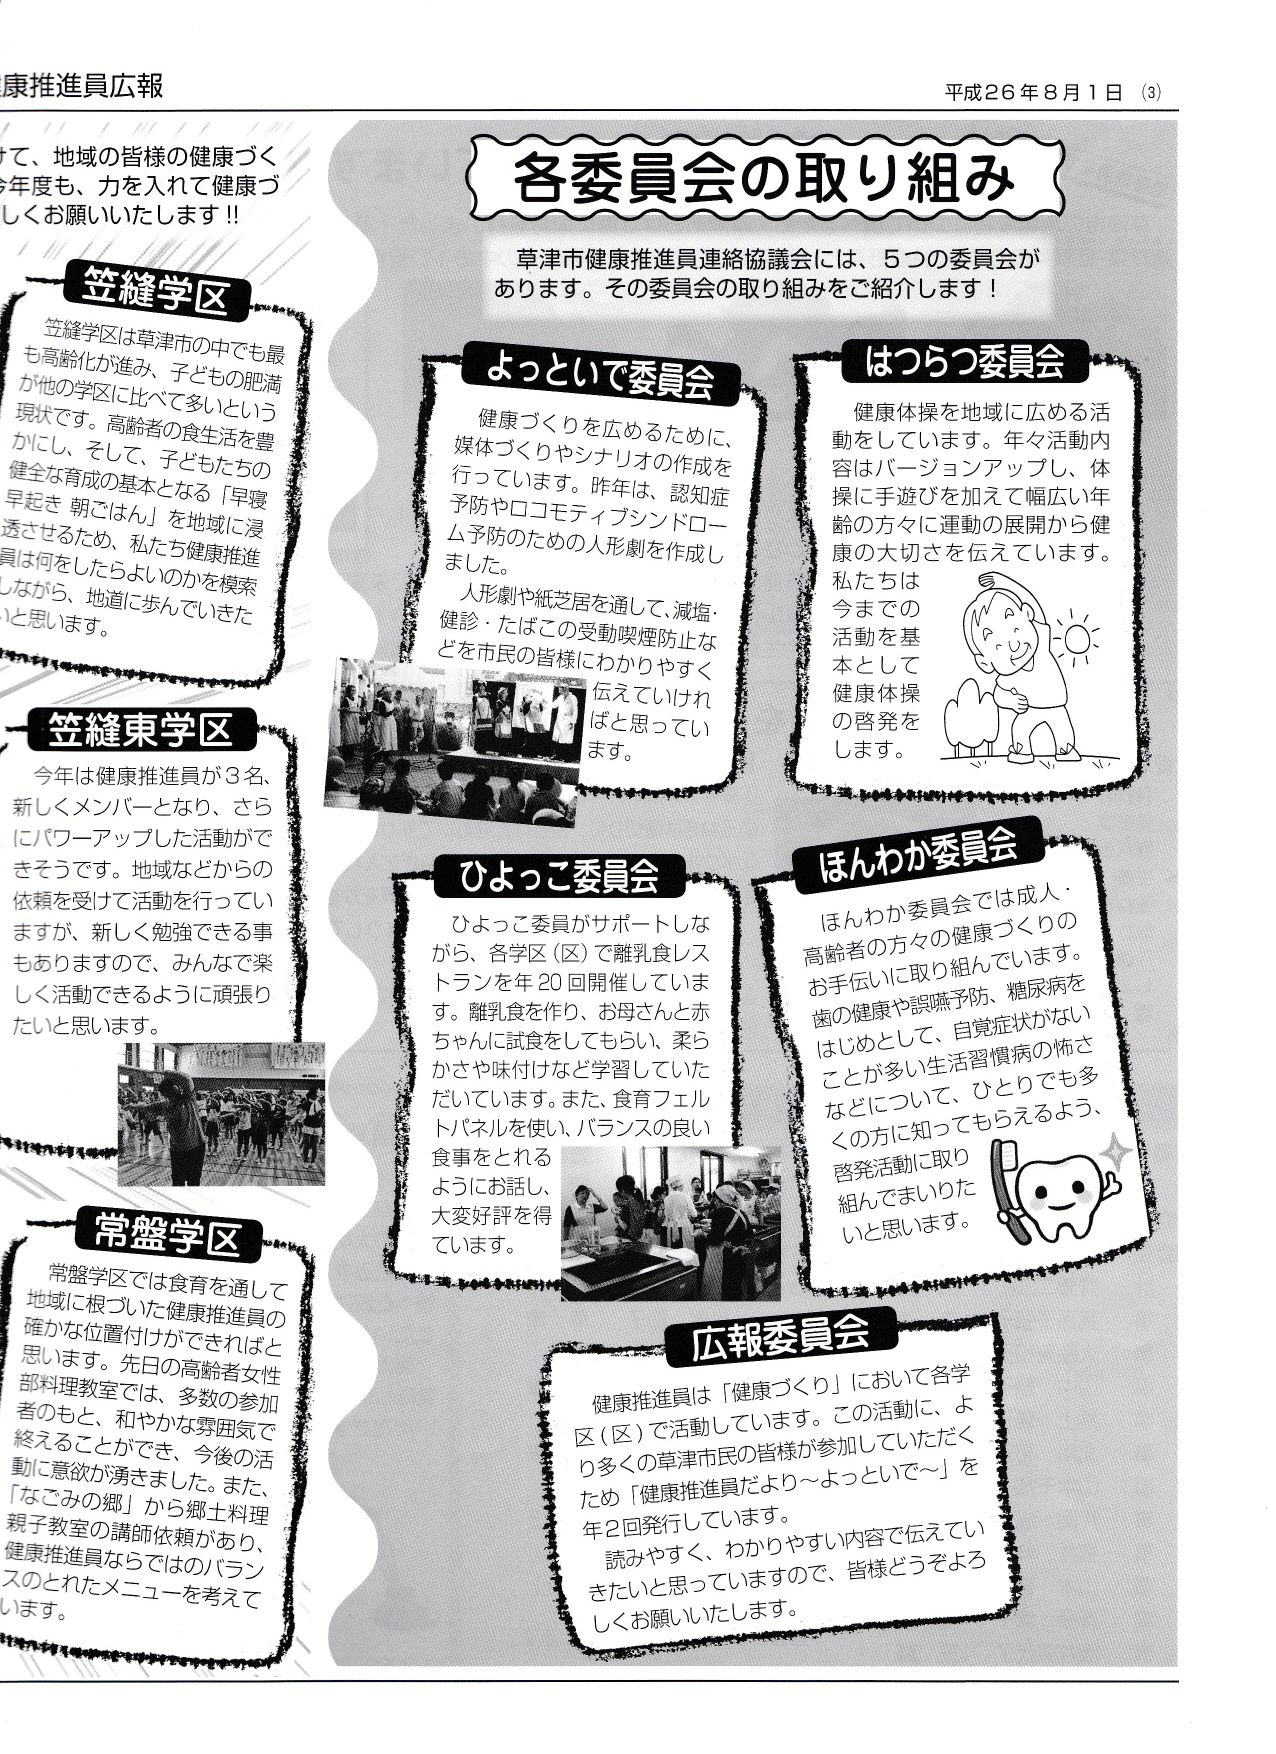 康推進員広報
平成26年8月1日 (3)
けて、地域の皆様の健康づく
今年度も、力を入れて健康づ
しくお願いいたします!!
笠縫学区
笠縫学区は草津市の中でも最
も高齢化が進み、子どもの肥満
が他の学区に比べて多いという
現状です。高齢者の食生活を豊
かにし、そして、子どもたちの
健全な育成の基本となる「早寝
早起き 朝ごはん」を地域に浸
透させるため、私たち健康推進
員は何をしたらよいのかを模索
しながら、地道に歩んでいきた
いと思います。
笠縫東学区
今年は健康推進員が3名、
新しくメンバーとなり、さら
にパワーアップした活動がで
きそうです。地域などからの
依頼を受けて活動を行ってい
ますが、新しく勉強できる事
もありますので、みんなで楽
しく活動できるように頑張り
たいと思います。
常盤学区
常盤学区では食育を通して
地域に根づいた健康推進員の
確かな位置付けができればと
思います。先日の高齢者女性
部料理教室では、多数の参加
者のもと、和やかな雰囲気で
終えることができ、今後の活
動に意欲が湧きました。また、
「なごみの郷」から郷土料理
親子教室の講師依頼があり、
健康推進員ならではのバラン
スのとれたメニューを考えて
います。
各委員会の取り組み
草津市健康推進員連絡協議会には、5つの委員会が
あります。その委員会の取り組みをご紹介します!
よっといで委員会
健康づくりを広めるために、
媒体づくりやシナリオの作成を
行っています。昨年は、認知症
予防やロコモティブシンドロー
ム予防のための人形劇を作成し
ました。
人形劇や紙芝居を通して、減塩・
健診・たばこの受動喫煙防止な
どを市民の皆様にわかりやすく
伝えていけれ
ばと思ってい
ます。
はつらつ委員会
健康体操を地域に広める活
動をしています。年々活動内
容はバージョンアップし、体
操に手遊びを加えて幅広い年
齢の方々に運動の展開から健
康の大切さを伝えています。
私たちは
今までの
活動を基
本として
健康体操
の啓発を
します。
ひよっこ委員会
ひよっこ委員がサポートしな
がら、各学区(区)で離乳食レス
トランを年20回開催していま
す。離乳食を作り、お母さんと赤
ちゃんに試食をしてもらい、柔ら
かさや味付けなど学習していた
だいています。また、食育フェル
トパネルを使い、バランスの良い
食事をとれる
ようにお話し、
大変好評を得
ています。
ほんわか委員会
ほんわか委員会では成人・
高齢者の方々の健康づくりの
お手伝いに取り組んでいます。
歯の健康や誤嚥予防、糖尿病を
はじめとして、自覚症状がない
ことが多い生活習慣病の怖さ
などについて、ひとりでも多
くの方に知ってもらえるよう、
啓発活動に取り
組んでまいりた
いと思います。
広報委員会
健康推進員は「健康づくり」において各学
区(区)で活動しています。この活動に、よ
り多くの草津市民の皆様が参加していただく
ため「健康推進員だより～よっといで～」を
年2回発行しています。
読みやすく、わかりやすい内容で伝えてい
きたいと思っていますので、皆様どうぞよろ
しくお願いいたします。